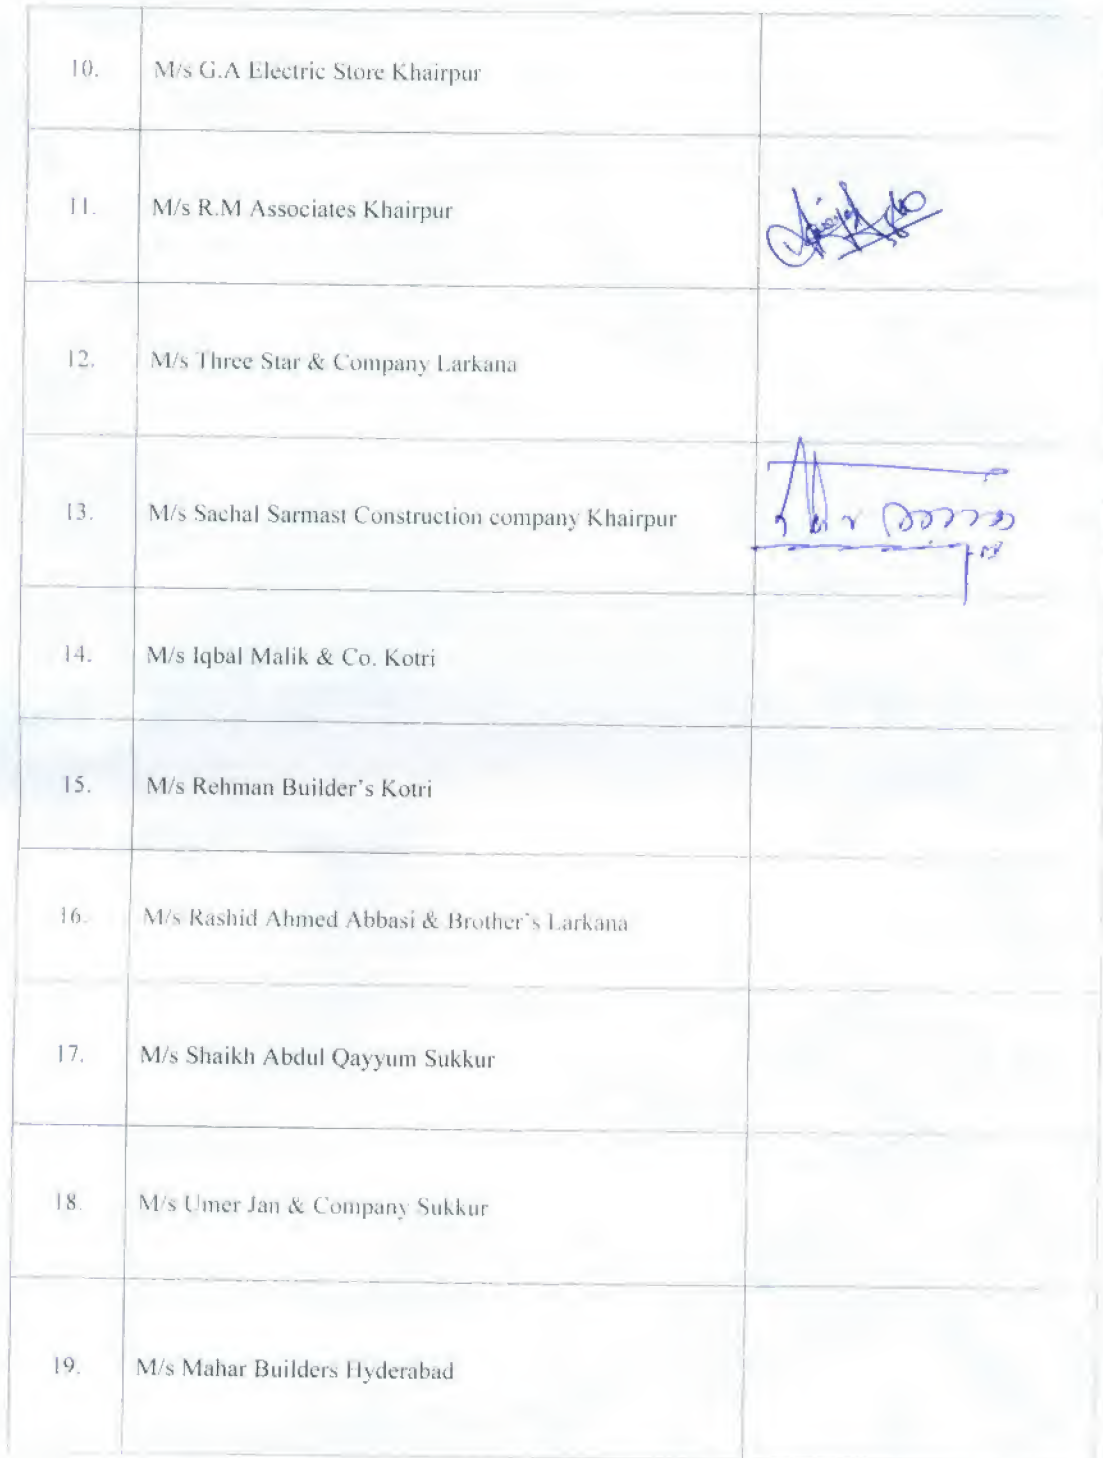 10. M/s G.A Electric Store Khairpur
11. M/s R.M Associates Khairpur
12. M/s Three Star & Company Larkana
13. M/s Sachal Sarmast Construction company Khairpur
14. M/s Iqbal Malik & Co. Kotri
15. M/s Rehman Builder's Kotri
16. M/s Rashid Ahmed Abbasi & Brother's Larkana
17. M/s Shaikh Abdul Qayyum Sukkur
18. M/s Umer Jan & Company Sukkur
19. M/s Mahar Builders Hyderabad